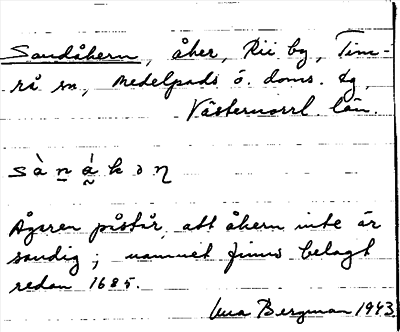 Sandåkern, åker, Rii by, Tim-
rå sn, Medelpads ö. doms. tg,
Västernorrl. län.
sànákən
Ägaren påstår, att åkern inte är
sandig; namnet finns belagt
redan 1685.
Bergman 1943